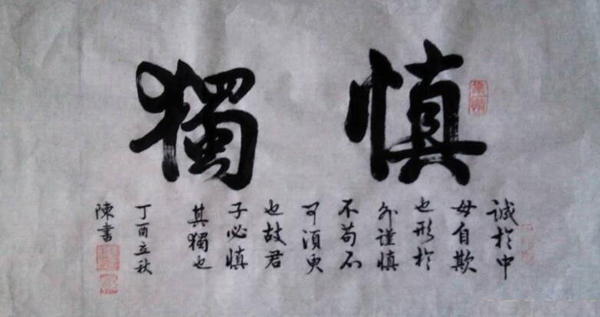 慎獨
誠於中
毋自欺
也形於
外謹慎
不苟不
可須臾
也故君
子必慎
其獨也
丁酉立秋
陳書